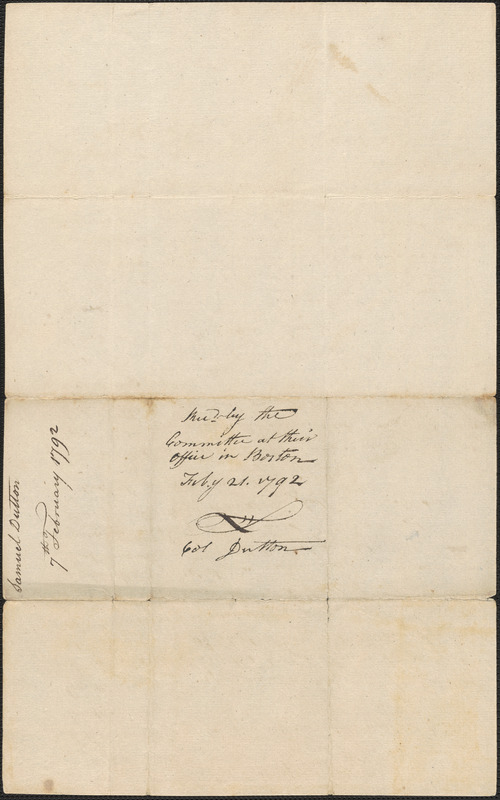 Recd by the
Committee at their
office in Boston
Feb.y 21. 1792
Col Dutton
Samuel Dutton
7th of February 1792